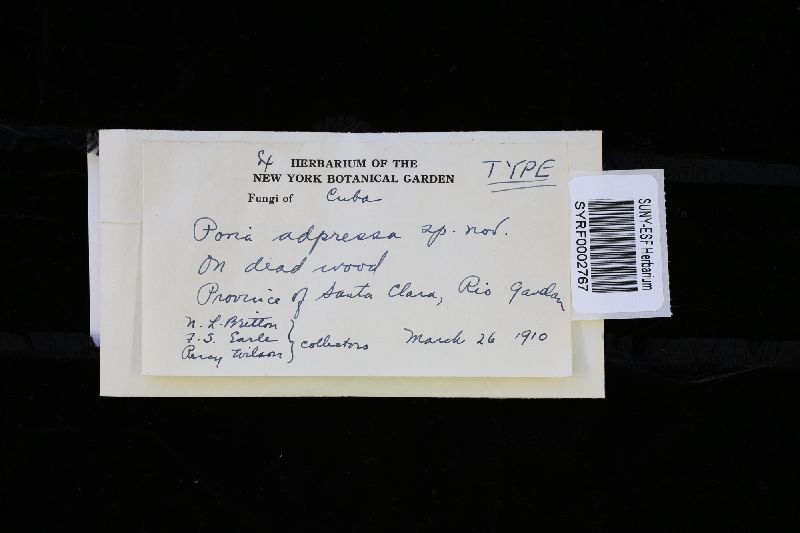 Ex HERBARIUM OF THE
NEW YORK BOTANICAL GARDEN
TYPE
Fungi of Cuba
Poria adpressa sp. nov.
On dead wood
Province of Santa Clara, Rio
N. L. Britton
F. S. Earle
Percy Wilson
collectors
March 26 1910
SUNY-ESF Herbarium
SYRF0002767